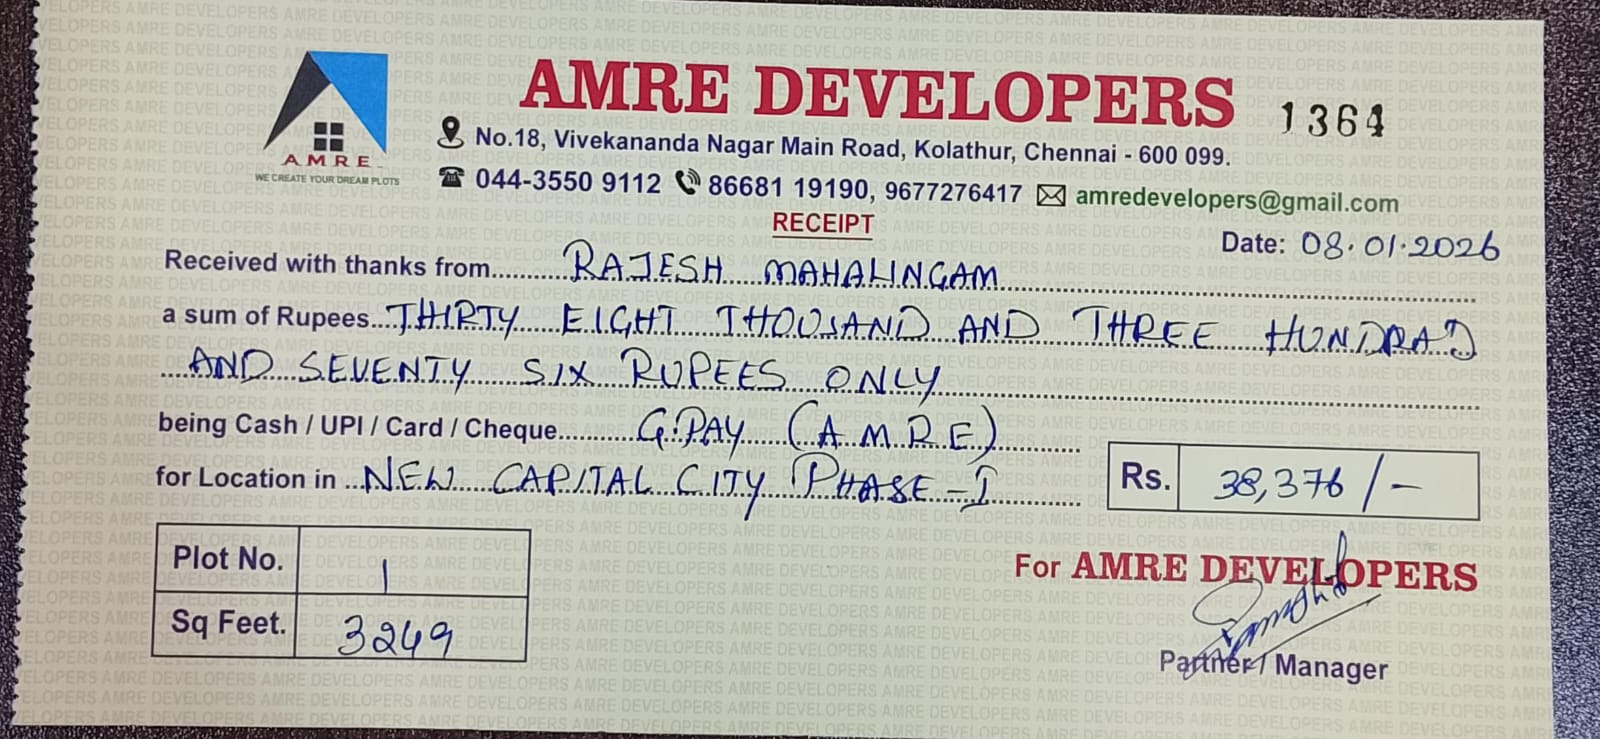 AMRE DEVELOPERS 1364
AMRE
WE CREATE YOUR DREAM PLOTS
No.18, Vivekananda Nagar Main Road, Kolathur, Chennai - 600 099.
044-3550 9112 86681 19190, 9677276417 amredevelopers@gmail.com
RECEIPT
Date: 08.01.2026
Received with thanks from RAJESH MAHALINGAM
a sum of Rupees THIRTY EIGHT THOUSAND AND THREE HUNDRAD
AND SEVENTY SIX RUPEES ONLY
being Cash / UPI / Card / Cheque G.PAY (A.M.R.E)
for Location in NEW CAPITAL CITY PHASE-I
Rs. 38,376/-
Plot No. 1
Sq Feet. 3249
For AMRE DEVELOPERS
Partner / Manager